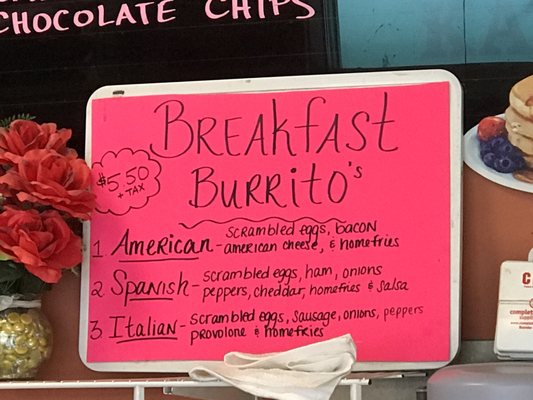 CHOCOLATE CHIPS
BREAKfAST
BURRITO'S
$5.50
+ TAX
1 AMERICAN - SCRAMBLED EGGS, BACON
AMERICAN CHEESE, & HOMEFRIES
2 SPANISH - SCRAMBLED EGGS, HAM, ONIONS
PEPPERS, CHEDDAR, HOMEFRIES & SALSA
3 ITALIAN - SCRAMBLED EGGS, SAUSAGE, ONIONS, PEPPERS
PROVOLONE & HOMEFRIES